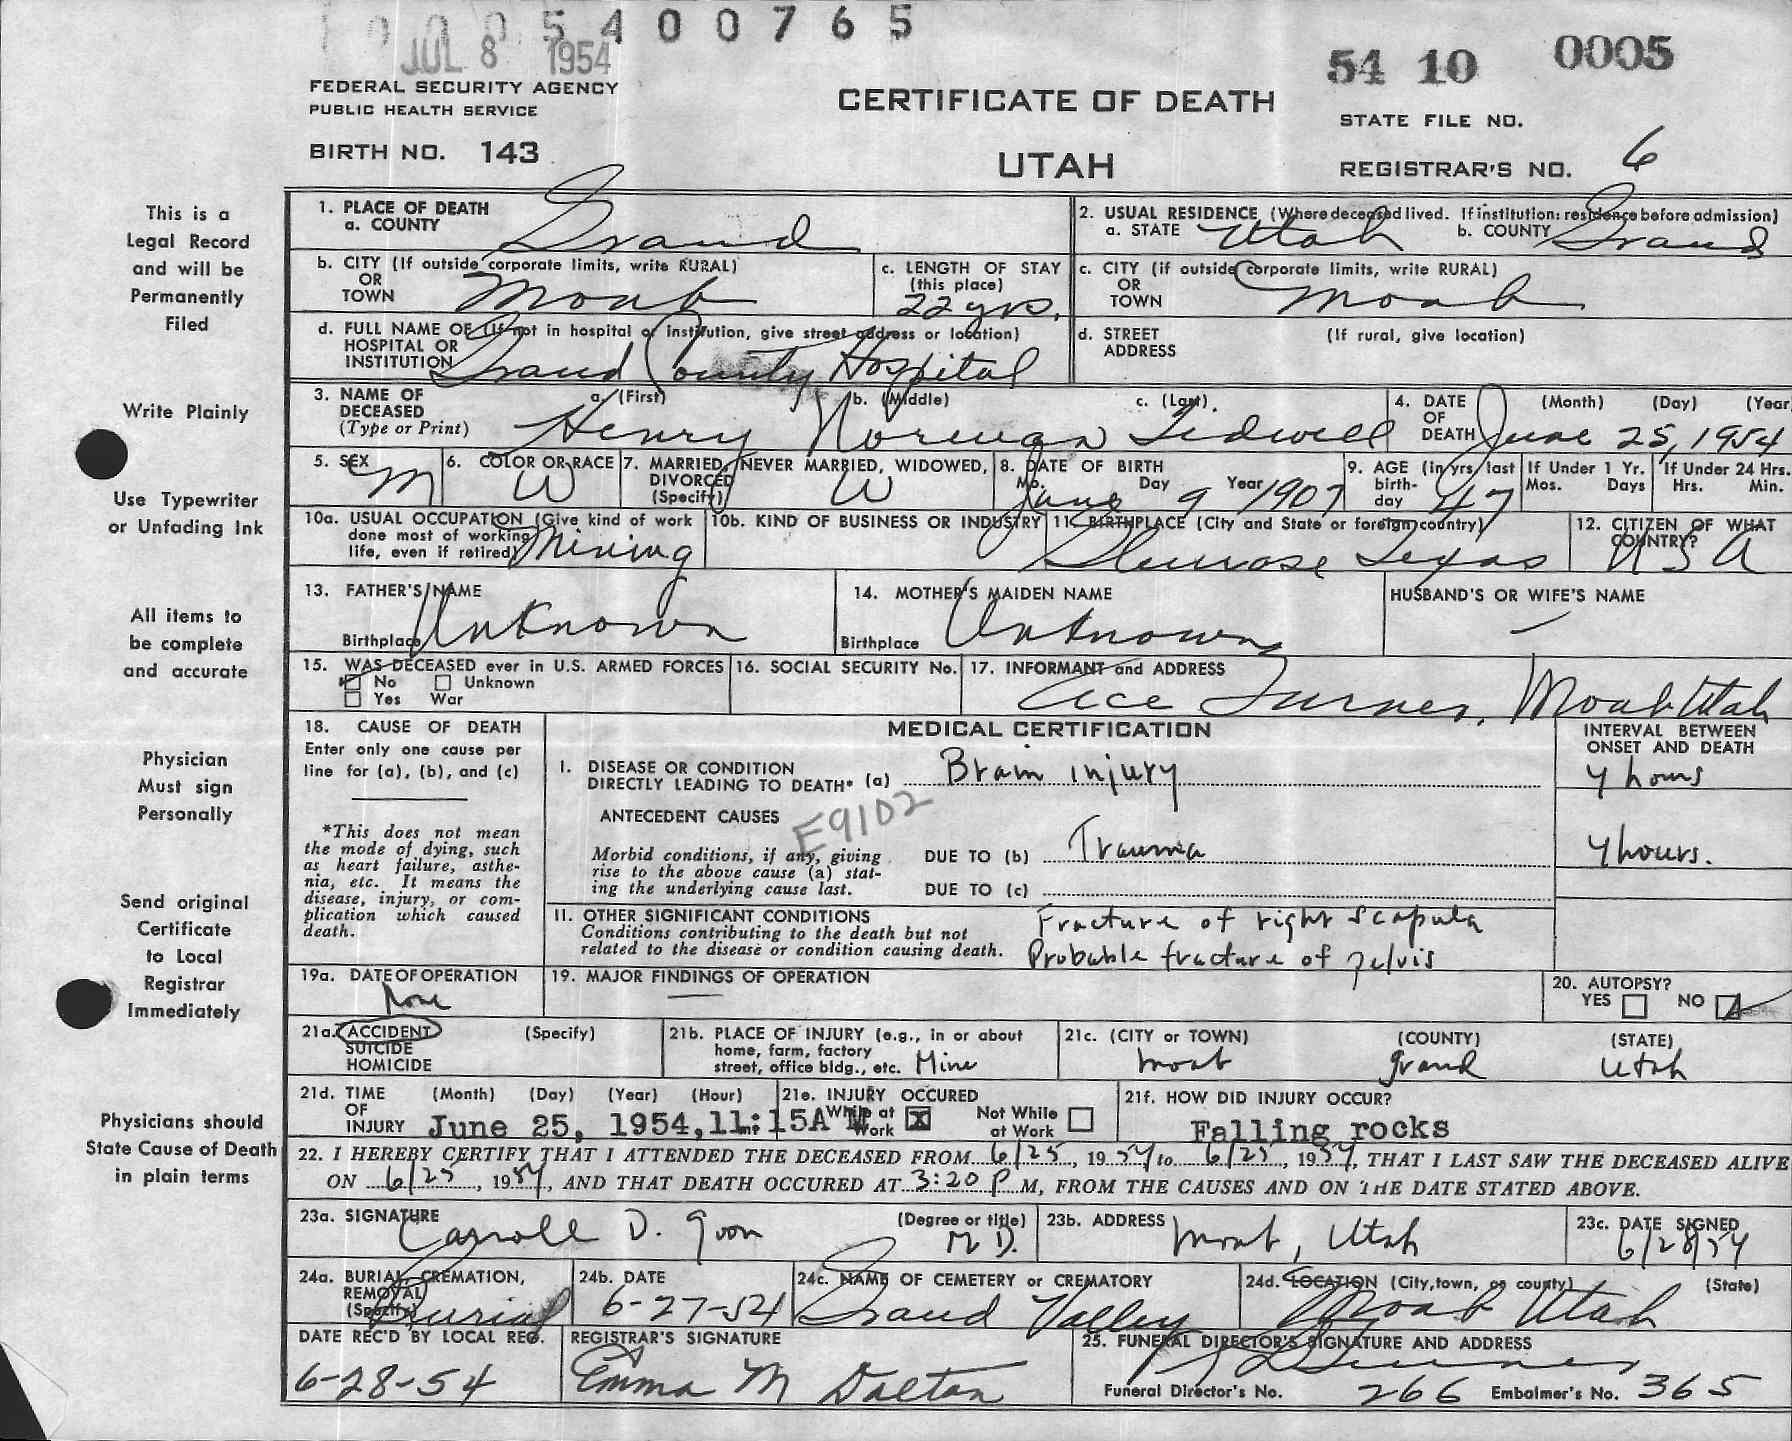 5400765
JUL 8 1954
54 10 0005
FEDERAL SECURITY AGENCY
PUBLIC HEALTH SERVICE
CERTIFICATE OF DEATH
STATE FILE NO.
BIRTH NO. 143
UTAH
REGISTRAR'S NO. 6
This is a
Legal Record
and will be
Permanently
Filed
Write Plainly
Use Typewriter
or Unfading Ink
All items to
be complete
and accurate
Physician
Must sign
Personally
Send original
Certificate
to Local
Registrar
Immediately
Physicians should
State Cause of Death
in plain terms
1. PLACE OF DEATH
a. COUNTY Grand
2. USUAL RESIDENCE (Where deceased lived. If institution: residence before admission)
a. STATE Utah b. COUNTY Grand
b. CITY (If outside corporate limits, write RURAL)
OR
TOWN Moab
c. LENGTH OF STAY
(this place)
22 yrs.
c. CITY (if outside corporate limits, write RURAL)
OR
TOWN Moab
d. FULL NAME OF (If not in hospital or institution, give street address or location)
HOSPITAL OR
INSTITUTION Grand County Hospital
d. STREET (If rural, give location)
ADDRESS
3. NAME OF a. (First) b. (Middle) c. (Last)
DECEASED
(Type or Print) Henry Norman Tidwell
4. DATE (Month) (Day) (Year
OF
DEATH June 25, 1954
5. SEX M
6. COLOR OR RACE W
7. MARRIED, NEVER MARRIED, WIDOWED,
DIVORCED
(Specify) W
8. DATE OF BIRTH
Mo. Day Year
June 9 1907
9. AGE (in yrs. last
birth-
day 47
If Under 1 Yr.
Mos. Days
If Under 24 Hrs.
Hrs. Min.
10a. USUAL OCCUPATION (Give kind of work
done most of working
life, even if retired) Mining
10b. KIND OF BUSINESS OR INDUSTRY
11. BIRTHPLACE (City and State or foreign country)
Glenrose Texas
12. CITIZEN OF WHAT
COUNTRY?
USA
13. FATHER'S NAME
Birthplace Unknown
14. MOTHER'S MAIDEN NAME
Birthplace Unknown
HUSBAND'S OR WIFE'S NAME
—
15. WAS DECEASED ever in U.S. ARMED FORCES
No Unknown
Yes War
16. SOCIAL SECURITY No.
17. INFORMANT and ADDRESS
Ace Turner, Moab Utah
18. CAUSE OF DEATH
Enter only one cause per
line for (a), (b), and (c)
*This does not mean
the mode of dying, such
as heart failure, asthe-
nia, etc. It means the
disease, injury, or com-
plication which caused
death.
MEDICAL CERTIFICATION
INTERVAL BETWEEN
ONSET AND DEATH
I. DISEASE OR CONDITION
DIRECTLY LEADING TO DEATH* (a) Brain injury
4 hours
ANTECEDENT CAUSES E9102
Morbid conditions, if any, giving
rise to the above cause (a) stat-
ing the underlying cause last.
DUE TO (b) Trauma
4 hours.
DUE TO (c)
II. OTHER SIGNIFICANT CONDITIONS
Conditions contributing to the death but not
related to the disease or condition causing death.
Fracture of right scapula
Probable fracture of pelvis
19a. DATE OF OPERATION
None
19. MAJOR FINDINGS OF OPERATION
—
20. AUTOPSY?
YES NO
21a. ACCIDENT (Specify)
SUICIDE
HOMICIDE
21b. PLACE OF INJURY (e.g., in or about
home, farm, factory
street, office bldg., etc. Mine
21c. (CITY or TOWN) (COUNTY) (STATE)
Moab Grand Utah
21d. TIME (Month) (Day) (Year) (Hour)
OF
INJURY June 25, 1954, 11:15A M
21e. INJURY OCCURED
While at Work X Not While at Work
21f. HOW DID INJURY OCCUR?
Falling rocks
22. I HEREBY CERTIFY THAT I ATTENDED THE DECEASED FROM 6/25, 1954 to 6/25, 1954, THAT I LAST SAW THE DECEASED ALIVE
ON 6/25, 1954, AND THAT DEATH OCCURED AT 3:20 P M, FROM THE CAUSES AND ON THE DATE STATED ABOVE.
23a. SIGNATURE (Degree or title)
Carroll D. Goon M D.
23b. ADDRESS
Moab, Utah
23c. DATE SIGNED
6/28/54
24a. BURIAL, CREMATION,
REMOVAL
(Specify) Burial
24b. DATE
6-27-54
24c. NAME OF CEMETERY or CREMATORY
Grand Valley
24d. LOCATION (City, town, or county) (State)
Moab Utah
DATE REC'D BY LOCAL REG.
6-28-54
REGISTRAR'S SIGNATURE
Emma M Dalton
25. FUNERAL DIRECTOR'S SIGNATURE AND ADDRESS
Funeral Director's No. 266 Embalmer's No. 365